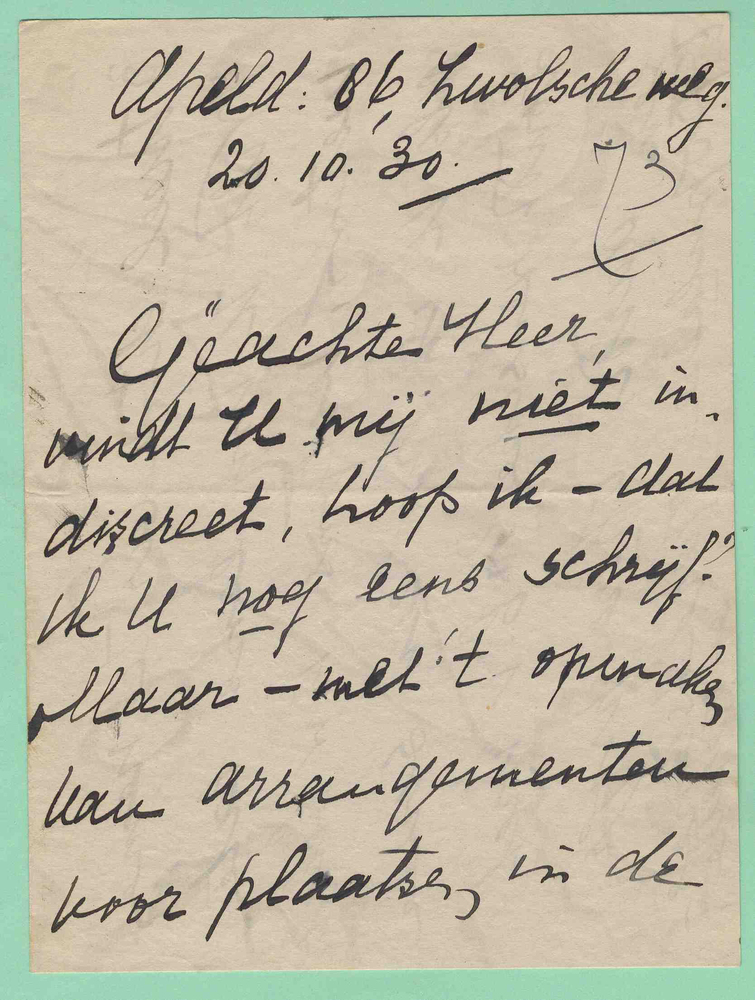 Apeld: 86, Zwolsche weg.
20.10.30.
73
Geachte Heer,
vindt U mij niet in-
discreet, hoop ik – dat
ik U nog eens schrijf?
Maar – met 't opmaken
van arrangementen
voor plaatsen, in de